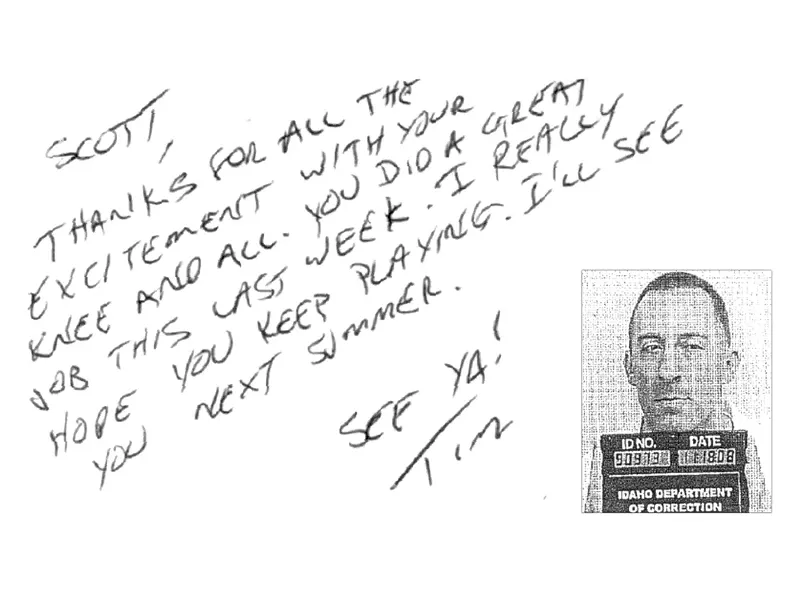 SCOTT,
THANKS FOR ALL THE
EXCITEMENT WITH YOUR
KNEE AND ALL. YOU DID A GREAT
JOB THIS LAST WEEK. I REALLY
HOPE YOU KEEP PLAYING. I'LL SEE
YOU NEXT SUMMER.
SEE YA!
TIM
ID NO. DATE
90973 11808
IDAHO DEPARTMENT
OF CORRECTION